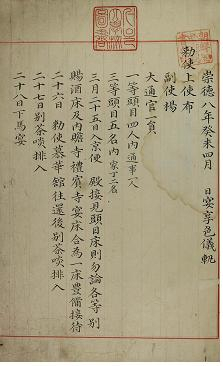 崇德八年癸未四月 日宴享色儀軌
勅使上使布
副使揚
大通官二員
一等頭目四人內通事一人
三等頭目五名內家丁二名
三月二十五日京便殿接見頭目床則勿論各等別
賜酒床及內贍寺禮賓寺宴床合為一床豊備接待
二十六日 勅使慕華舘往還後別茶啖排入
二十七日別茶啖排入
二十八日下馬宴